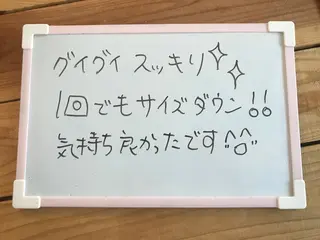 グイグイ スッキリ✨
1回でもサイズダウン!!
気持ち良かったです^o^